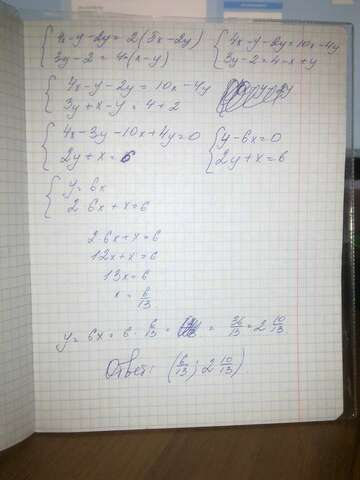 { 4x-y-2y=2(5x-2y) { 4x-y-2y=10x-4y
3y-2=4-(x-y) 3y-2=4-x+y
{ 4x-y-2y=10x-4y
3y+x-y=4+2
{ 4x-3y-10x+4y=0 { y-6x=0
2y+x=6 2y+x=6
{ y=6x
2·6x+x=6
2·6x+x=6
12x+x=6
13x=6
x=6/13
y=6x=6·6/13= =36/13=2 10/13
Ответ: (6/13; 2 10/13)